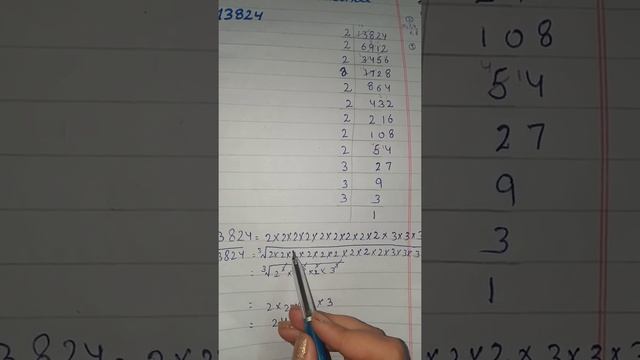 13824
2 13824
2 6912
2 3456
2 1728
2 864
2 432
2 216
2 108
2 54
3 27
3 9
3 3
1
3824 = 2×2×2×2×2×2×2×2×2×3×3×3
3824 = ∛2×2×2×2×2×2×2×2×2×3×3×3
= ∛2³×
×2³×3³
= 2×2
×3
=
108
54
27
9
3
1